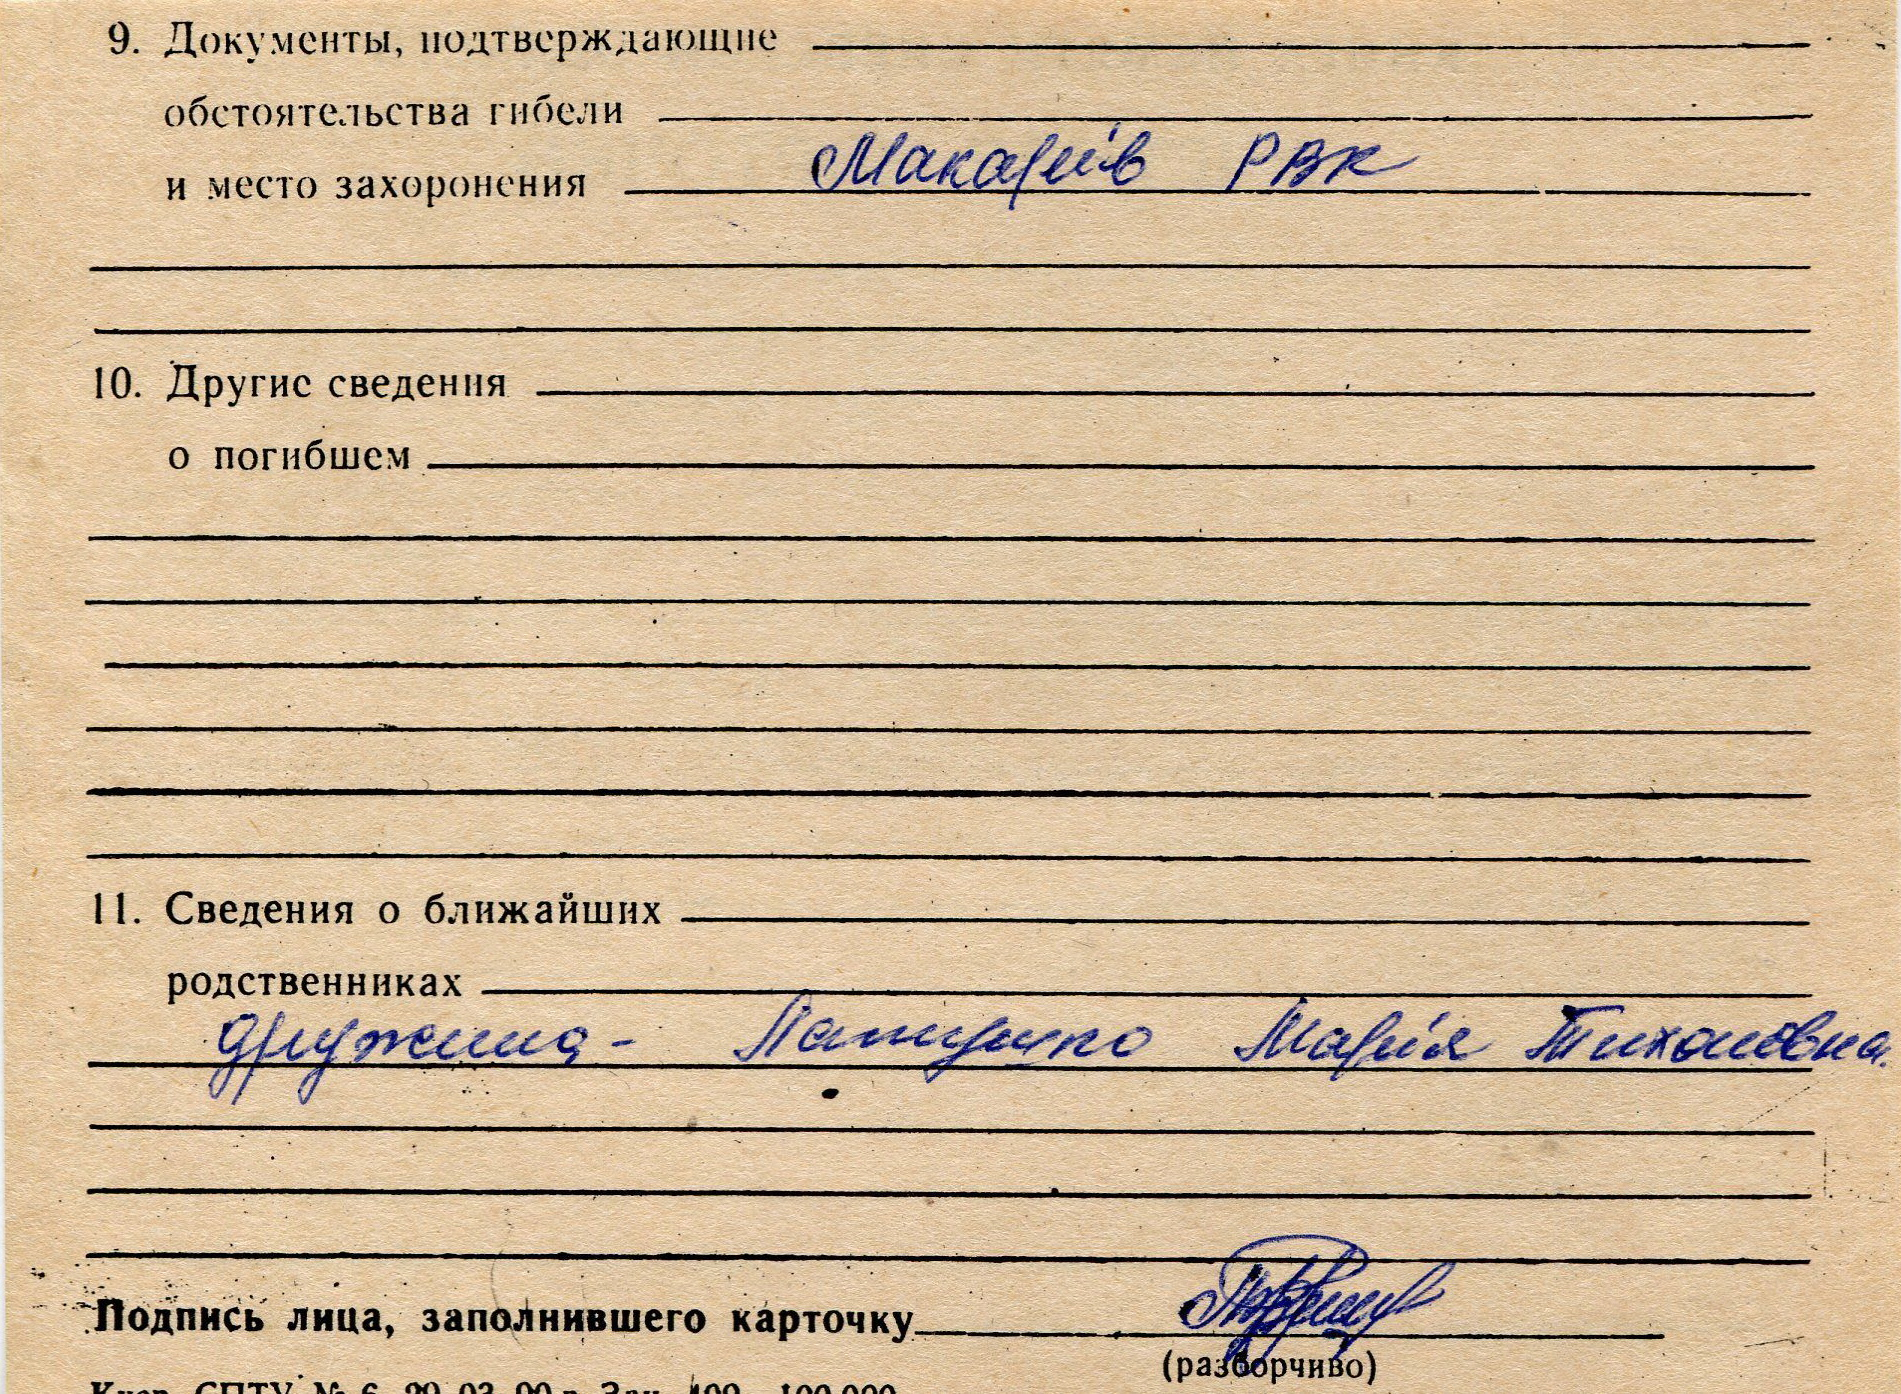 9. Документы, подтверждающие
обстоятельства гибели
и место захоронения Макарів РВК
10. Другие сведения
о погибшем
11. Сведения о ближайших
родственниках
дружина - Марія Тихоновна.
Подпись лица, заполнившего карточку
(разборчиво)